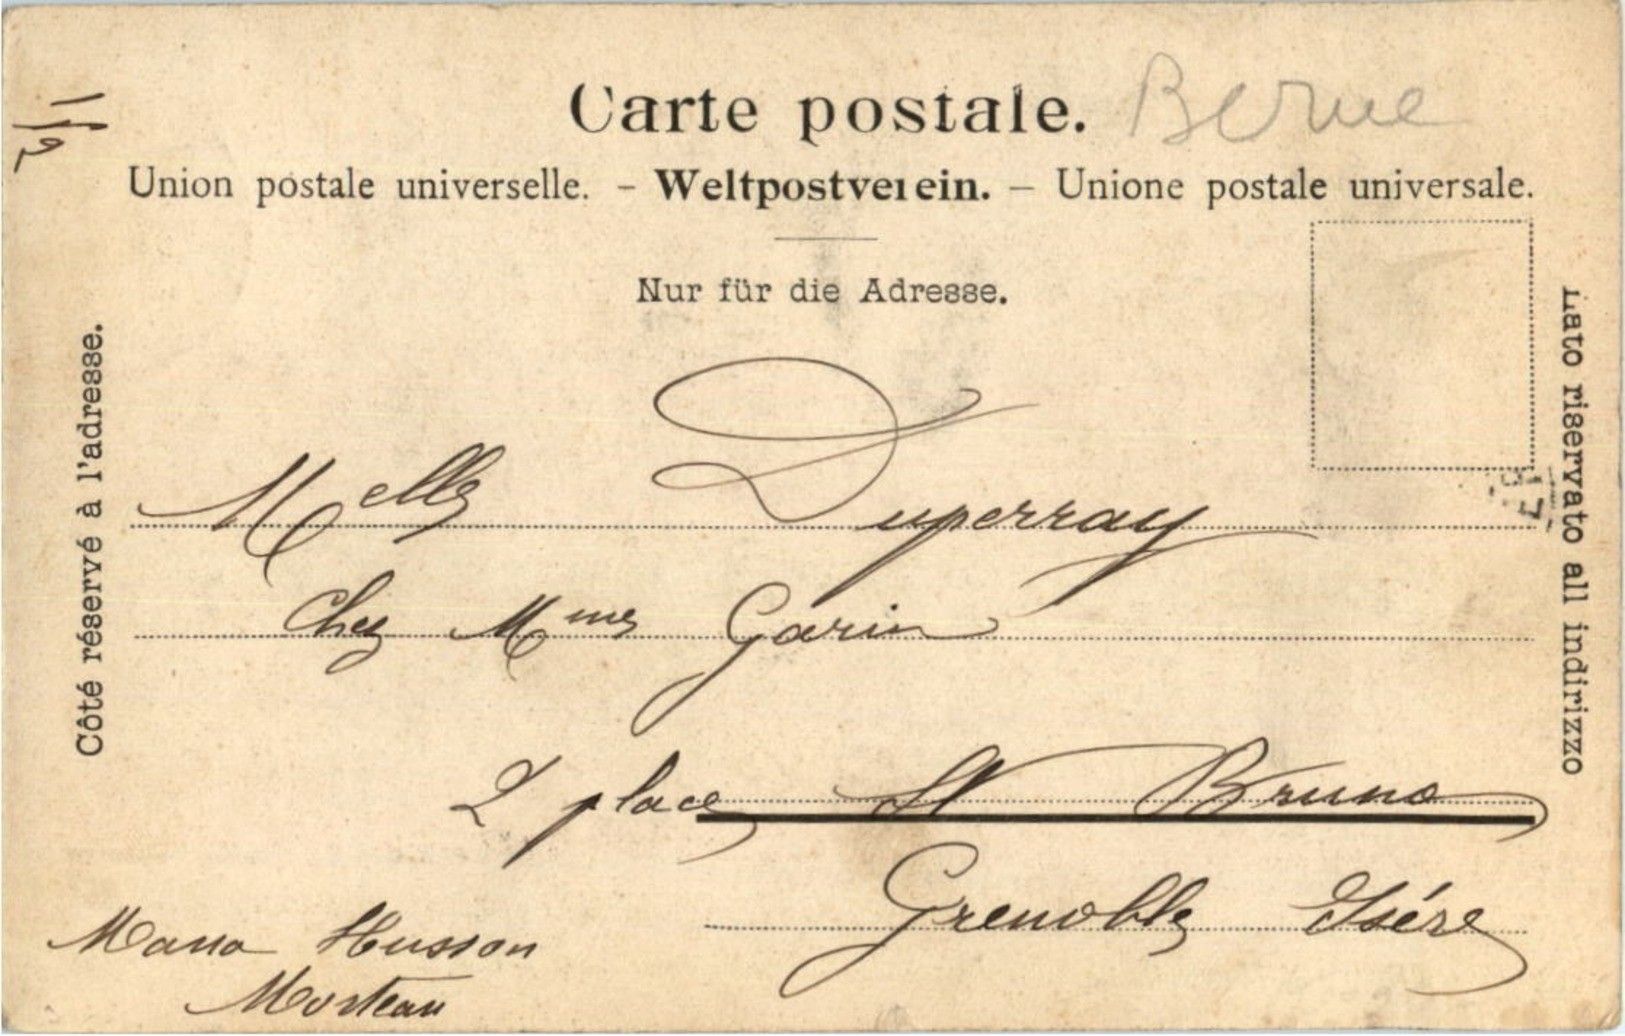 Carte postale. Berne
Union postale universelle. – Weltpostverein. – Unione postale universale.
Nur für die Adresse.
Côté réservé à l'adresse.
Lato riservato all indirizzo
Melle Duperray
Chez Mme Garin
2 place St Bruno
Grenoble Isère
Husson
Morteau
1/2